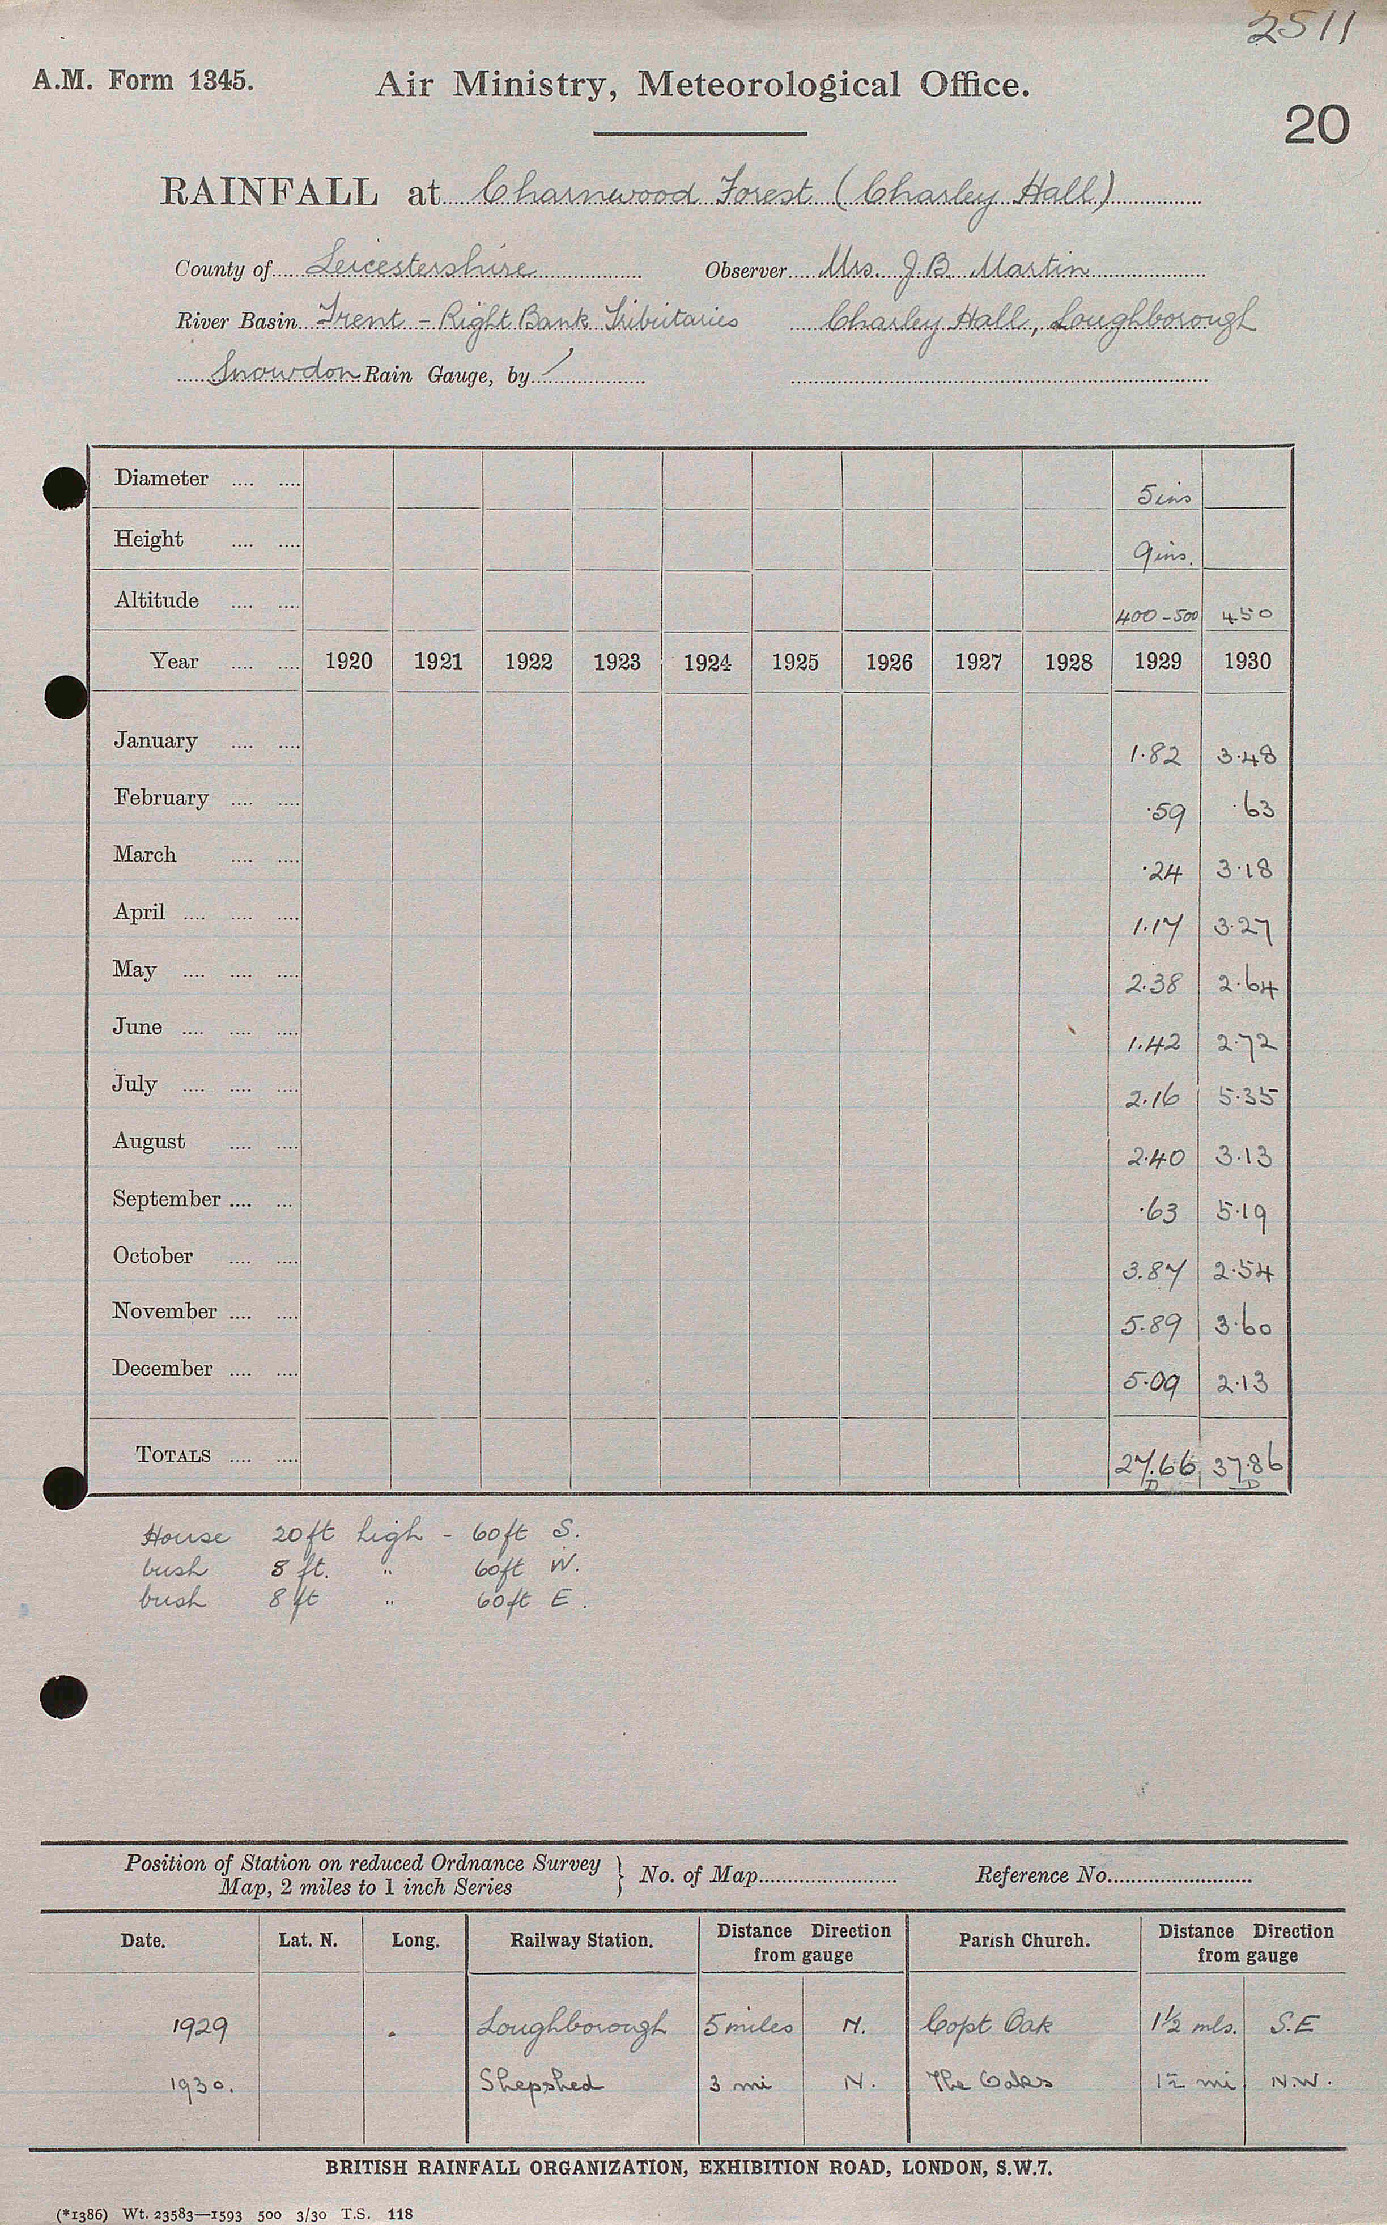 2511
A.M. Form 1345. Air Ministry, Meteorological Office.
20
RAINFALL at Charnwood Forest (Charley Hall)
County of Leicestershire Observer Mrs. J.B. Martin
River Basin Trent - Right Bank Tributaries Charley Hall, Loughborough
Snowdon Rain Gauge, by /
Diameter .... .... 5 ins
Height .... .... 9 ins.
Altitude .... .... 400-500 450
Year .... .... 1920 1921 1922 1923 1924 1925 1926 1927 1928 1929 1930
January .... .... 1.82 3.48
February .... .... .59 .63
March .... .... .24 3.18
April .... .... .... 1.17 3.27
May .... .... .... 2.38 2.64
June .... .... .... 1.42 2.72
July .... .... .... 2.16 5.35
August .... .... 2.40 3.13
September .... ... .63 5.19
October .... .... 3.87 2.54
November .... .... 5.89 3.60
December .... .... 5.09 2.13
TOTALS .... .... 27.66 37.86
D D
House 20ft high - 60ft S.
bush 8 ft. " 60ft W.
bush 8 ft " 60ft E.
Position of Station on reduced Ordnance Survey } No. of Map Reference No.
Map, 2 miles to 1 inch Series
Date. Lat. N. Long. Railway Station. Distance Direction Parish Church. Distance Direction
from gauge from gauge
1929 Loughborough 5 miles N. Copt Oak 1½ mls. S.E
1930. Shepshed 3 mi N. The Oaks 1½ mi N.W.
BRITISH RAINFALL ORGANIZATION, EXHIBITION ROAD, LONDON, S.W.7.
(*1386) Wt. 23583—1593 500 3/30 T.S. 118